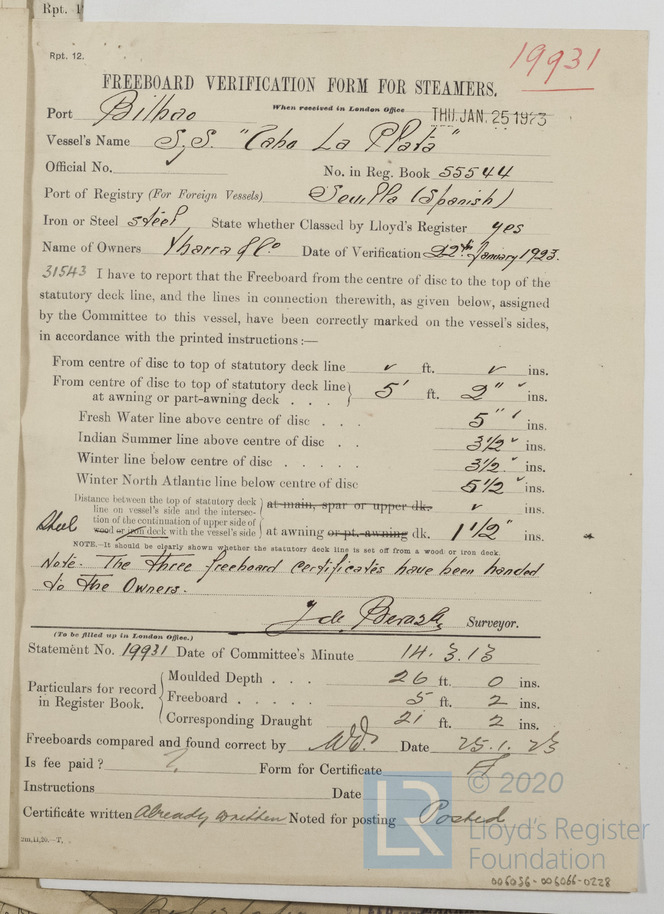 Rpt. 1
Rpt. 12.
19931
FREEBOARD VERIFICATION FORM FOR STEAMERS.
When received in London Office THU. JAN. 25 1923
Port Bilbao
Vessel's Name S.S. "Cabo La Plata"
Official No. No. in Reg. Book 55544
Port of Registry (For Foreign Vessels) Sevilla (Spanish)
Iron or Steel steel State whether Classed by Lloyd's Register yes
Name of Owners Ybarra & Co Date of Verification 22th January 1923.
31543 I have to report that the Freeboard from the centre of disc to the top of the
statutory deck line, and the lines in connection therewith, as given below, assigned
by the Committee to this vessel, have been correctly marked on the vessel's sides,
in accordance with the printed instructions:—
From centre of disc to top of statutory deck line ✓ ft. ✓ ins.
From centre of disc to top of statutory deck line
at awning or part-awning deck . . . 5' ft. 2" ✓ ins.
Fresh Water line above centre of disc . . . 5" ✓ ins.
Indian Summer line above centre of disc . . 3 1/2 ✓ ins.
Winter line below centre of disc . . . . . 3 1/2 ✓ ins.
Winter North Atlantic line below centre of disc 5 1/2 ✓ ins.
Distance between the top of statutory deck
line on vessel's side and the intersec-
tion of the continuation of upper side of
wood or iron deck with the vessel's side
Steel
at main, spar or upper dk. ✓ ins.
at awning or pt.-awning dk. 1 1/2" ins.
NOTE.—It should be clearly shown whether the statutory deck line is set off from a wood or iron deck.
Note. The three freeboard certificates have been handed
to the Owners.
J de Surveyor.
(To be filled up in London Office.)
Statement No. 19931 Date of Committee's Minute 14.3.13
Particulars for record
in Register Book.
Moulded Depth . . . . 26 ft. 0 ins.
Freeboard . . . . . 5 ft. 2 ins.
Corresponding Draught 21 ft. 2 ins.
Freeboards compared and found correct by Date 25.1.23
Is fee paid? ? Form for Certificate
Instructions Date
Certificate written Already written Noted for posting Posted
2m,11,20.—T.
LR
© 2020
Lloyd's Register
Foundation
006036-006066-0228